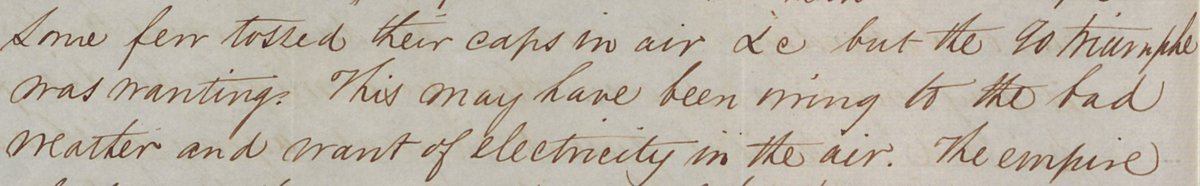 Some few tossed their caps in air &c but the Io triumphe
was wanting. This may have been owing to the bad
weather and want of electricity in the air. The empire